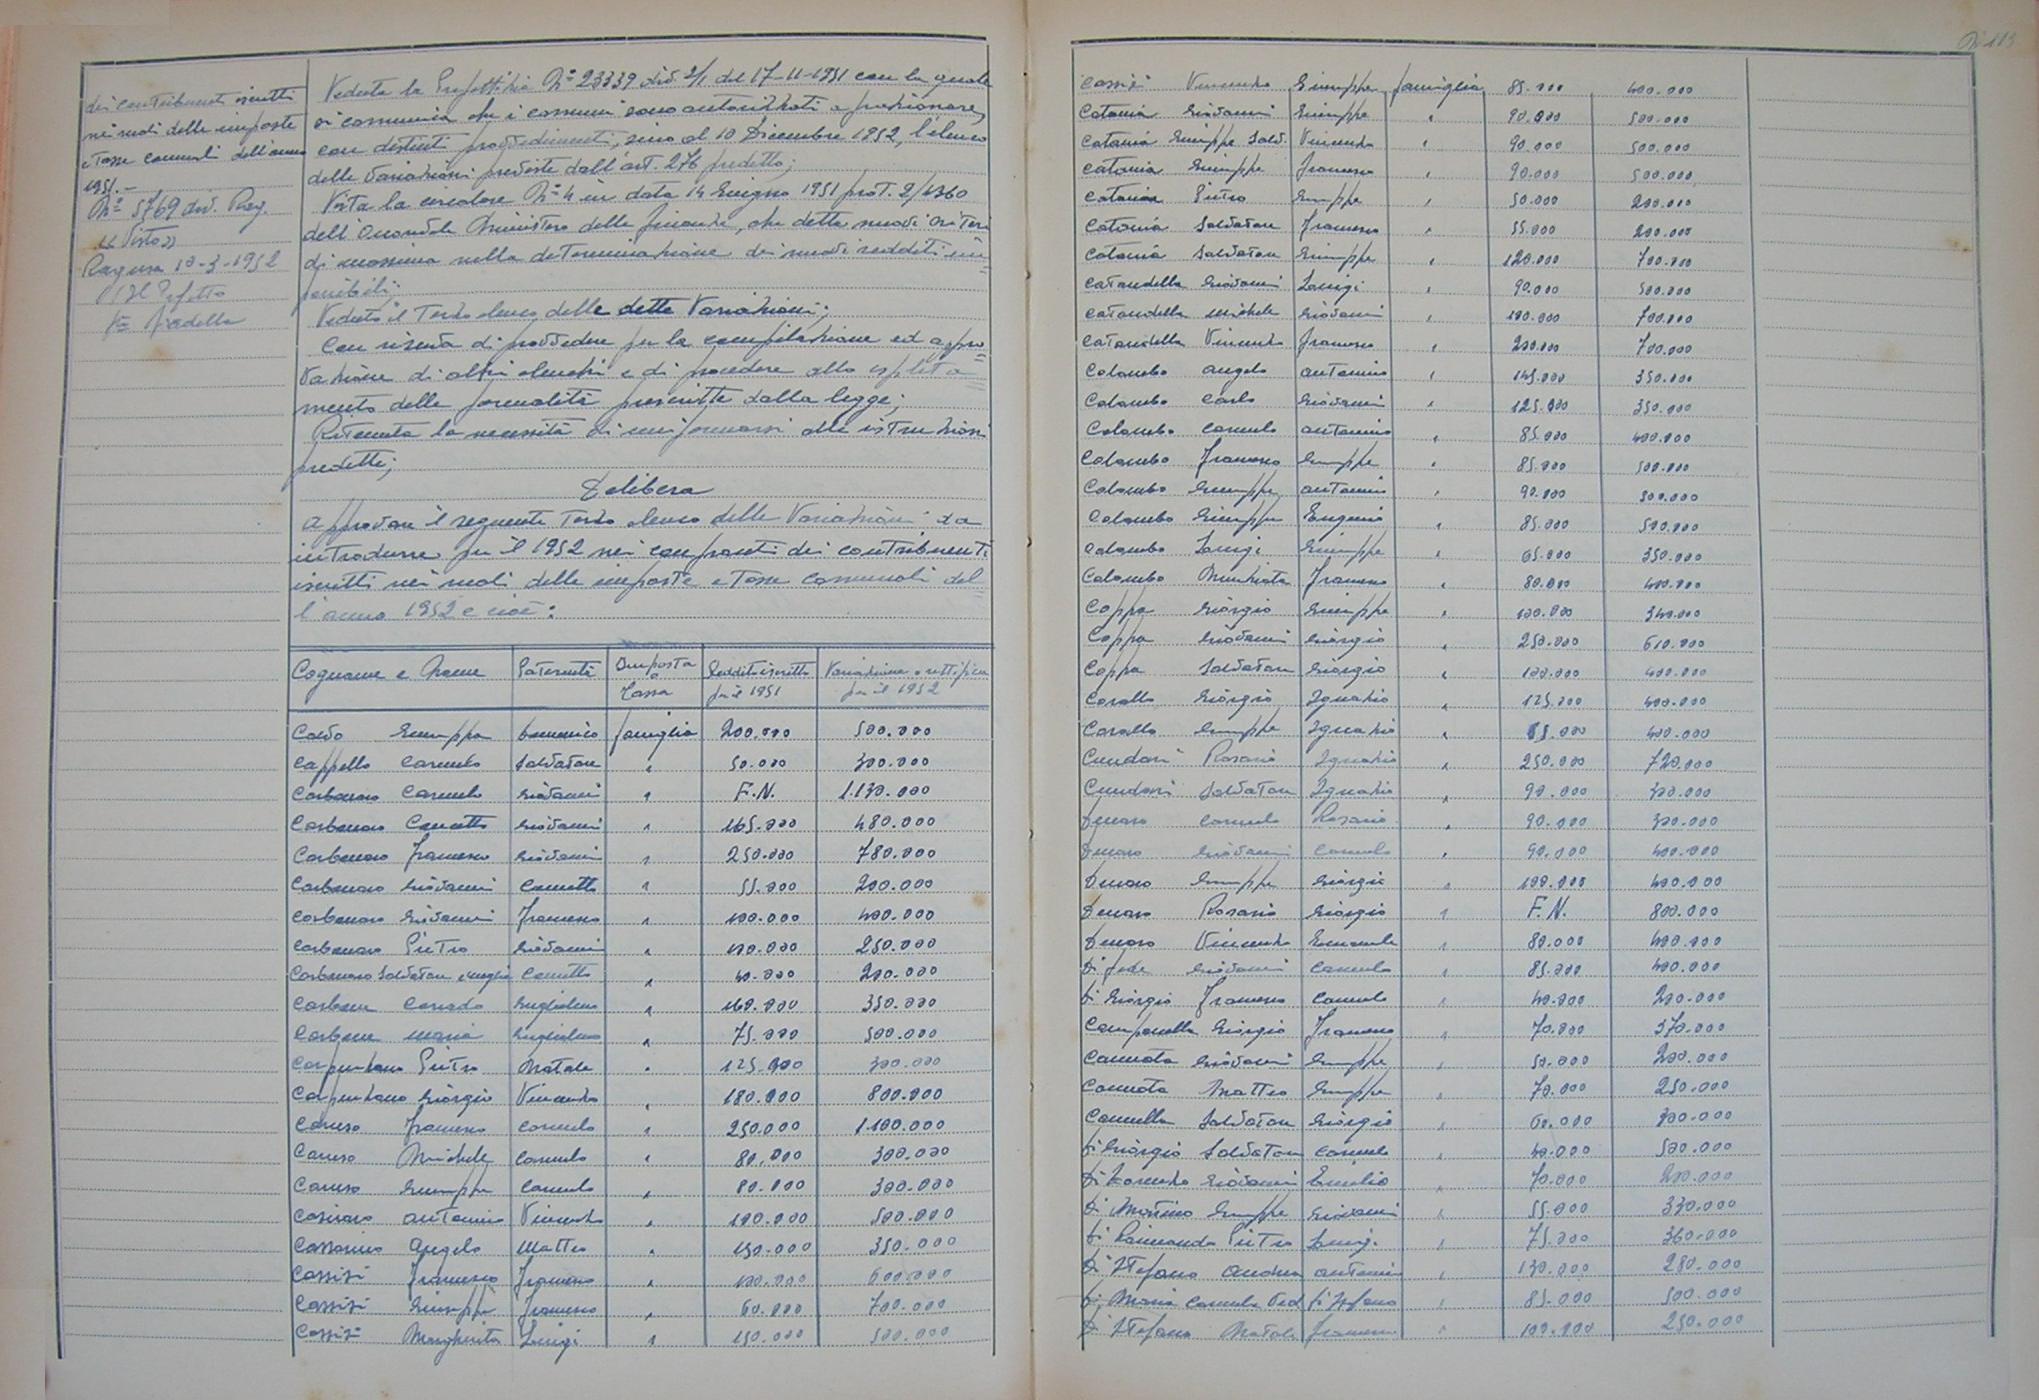 dei contribuenti iscritti
nei ruoli delle imposte
e Tasse comunali dell'anno
1951.-
N° 5769 div. Rag.
"Visto"
Ragusa 10-3-1952
Il Prefetto
Veduta la Prefettizia N° 23339 div. 2/1 del 17-11-1951 con la quale
si comunica che i comuni sono autorizzati a frazionare,
con distinti provvedimenti, sino al 10 Dicembre 1952, l'elenco
delle variazioni previste dall'art. 276 predetto;
Vista la circolare N° 4 in data 14 Giugno 1951 prot. 2/4360
dell'Onorevole Ministero delle finanze, che detta nuovi criteri
di massima nella determinazione dei nuovi redditi im=
ponibili;
Veduto il Terzo elenco delle dette Variazioni;
Con riserva di provvedere per la compilazione ed appro=
vazione di altri elenchi e di procedere allo espleta=
mento delle formalità prescritte dalla legge;
Ritenuta la necessità di uniformarsi alle istruzioni
predette;
Delibera
Approvare il seguente Terzo elenco delle Variazioni da
introdurre per il 1952 nei confronti dei contribuenti
iscritti nei ruoli delle imposte e Tasse comunali del
l'anno 1952 e cioè:
Cognome e Nome Paternità Imposta o Tassa Redditi iscritti per il 1951 Variazione o rettifica per il 1952
Calvo Giuseppa Domenico famiglia 200.000 500.000
Cappello Carmelo Salvatore " 50.000 300.000
Carbonaro Carmelo Giovanni " F.N. 1.130.000
Carbonaro Concetto Giovanni " 165.000 480.000
Carbonaro Francesco Giovanni " 250.000 780.000
Carbonaro Giovanni Concetto " 55.000 200.000
Carbonaro Giovanni Francesco " 100.000 400.000
Carbonaro Pietro Giovanni " 100.000 250.000
Carbonaro Salvatore e moglie Concetto " 40.000 200.000
Carbone Corrado Guglielmo " 160.000 350.000
Carbone Maria Guglielmo " 75.000 500.000
Carpinzano Pietro Natale " 125.000 300.000
Carpinzano Giorgio Vincenzo " 180.000 800.000
Caruso Francesco Carmelo " 250.000 1.100.000
Caruso Michele Carmelo " 80.000 300.000
Caruso Giuseppe Carmelo " 80.000 300.000
Casiraro Antonino Vincenzo " 100.000 500.000
Cassarino Angelo Matteo " 150.000 350.000
Cassisi Francesco Francesco " 100.000 600.000
Cassisi Giuseppe Francesco " 60.000 700.000
Cassisi Margherita Luigi " 150.000 500.000
Cassisi Vincenzo Giuseppe famiglia 85.000 400.000
Catania Giovanni Giuseppe " 90.000 500.000
Catania Giuseppe Salv. Vincenzo " 90.000 500.000
Catania Giuseppe Francesco " 90.000 500.000
Catania Pietro Giuseppe " 50.000 200.000
Catania Salvatore Francesco " 55.000 200.000
Catania Salvatore Giuseppe " 120.000 700.000
Cataudella Giovanni Luigi " 90.000 500.000
Cataudella Michele Giovanni " 180.000 700.000
Cataudella Vincenzo Francesco " 200.000 700.000
Colombo Angelo Antonino " 145.000 350.000
Colombo Carlo Giovanni " 125.000 350.000
Colombo Carmelo Antonino " 85.000 400.000
Colombo Francesco Giuseppe " 85.000 500.000
Colombo Giuseppe Antonino " 90.000 300.000
Colombo Giuseppe Eugenio " 85.000 500.000
Colombo Luigi Giuseppe " 65.000 350.000
Colombo Nunziata Francesco " 80.000 400.000
Coppa Giorgio Giuseppe " 100.000 340.000
Coppa Giovanni Giorgio " 250.000 610.000
Coppa Salvatore Giorgio " 100.000 400.000
Corallo Giorgio Ignazio " 125.000 400.000
Corallo Giuseppe Ignazio " 85.000 400.000
Cundari Rosario Ignazio " 250.000 720.000
Cundari Salvatore Ignazio " 90.000 300.000
Denaro Carmelo Rosario " 90.000 300.000
Denaro Giovanni Carmelo " 90.000 400.000
Denaro Giuseppe Giorgio " 100.000 400.000
Denaro Rosario Giorgio " F.N. 800.000
Denaro Vincenzo Emanuele " 80.000 400.000
Di Fede Giovanni Carmelo " 85.000 400.000
Di Giorgio Francesco Carmelo " 40.000 200.000
Campanella Giorgio Francesco " 70.000 370.000
Cannata Giovanni Giuseppe " 50.000 200.000
Cannata Matteo Giuseppe " 70.000 250.000
Cannella Salvatore Giorgio " 60.000 300.000
Di Giorgio Salvatore Carmelo " 40.000 500.000
Di Lorenzo Giovanni Emilio " 70.000 200.000
Di Martino Giuseppe Giovanni " 55.000 330.000
Di Raimondo Pietro Luigi " 75.000 360.000
Di Stefano Andrea Antonino " 130.000 280.000
Di Maria Carmela Ved. Di Stefano " 85.000 500.000
Di Stefano Natale Francesco " 100.000 250.000